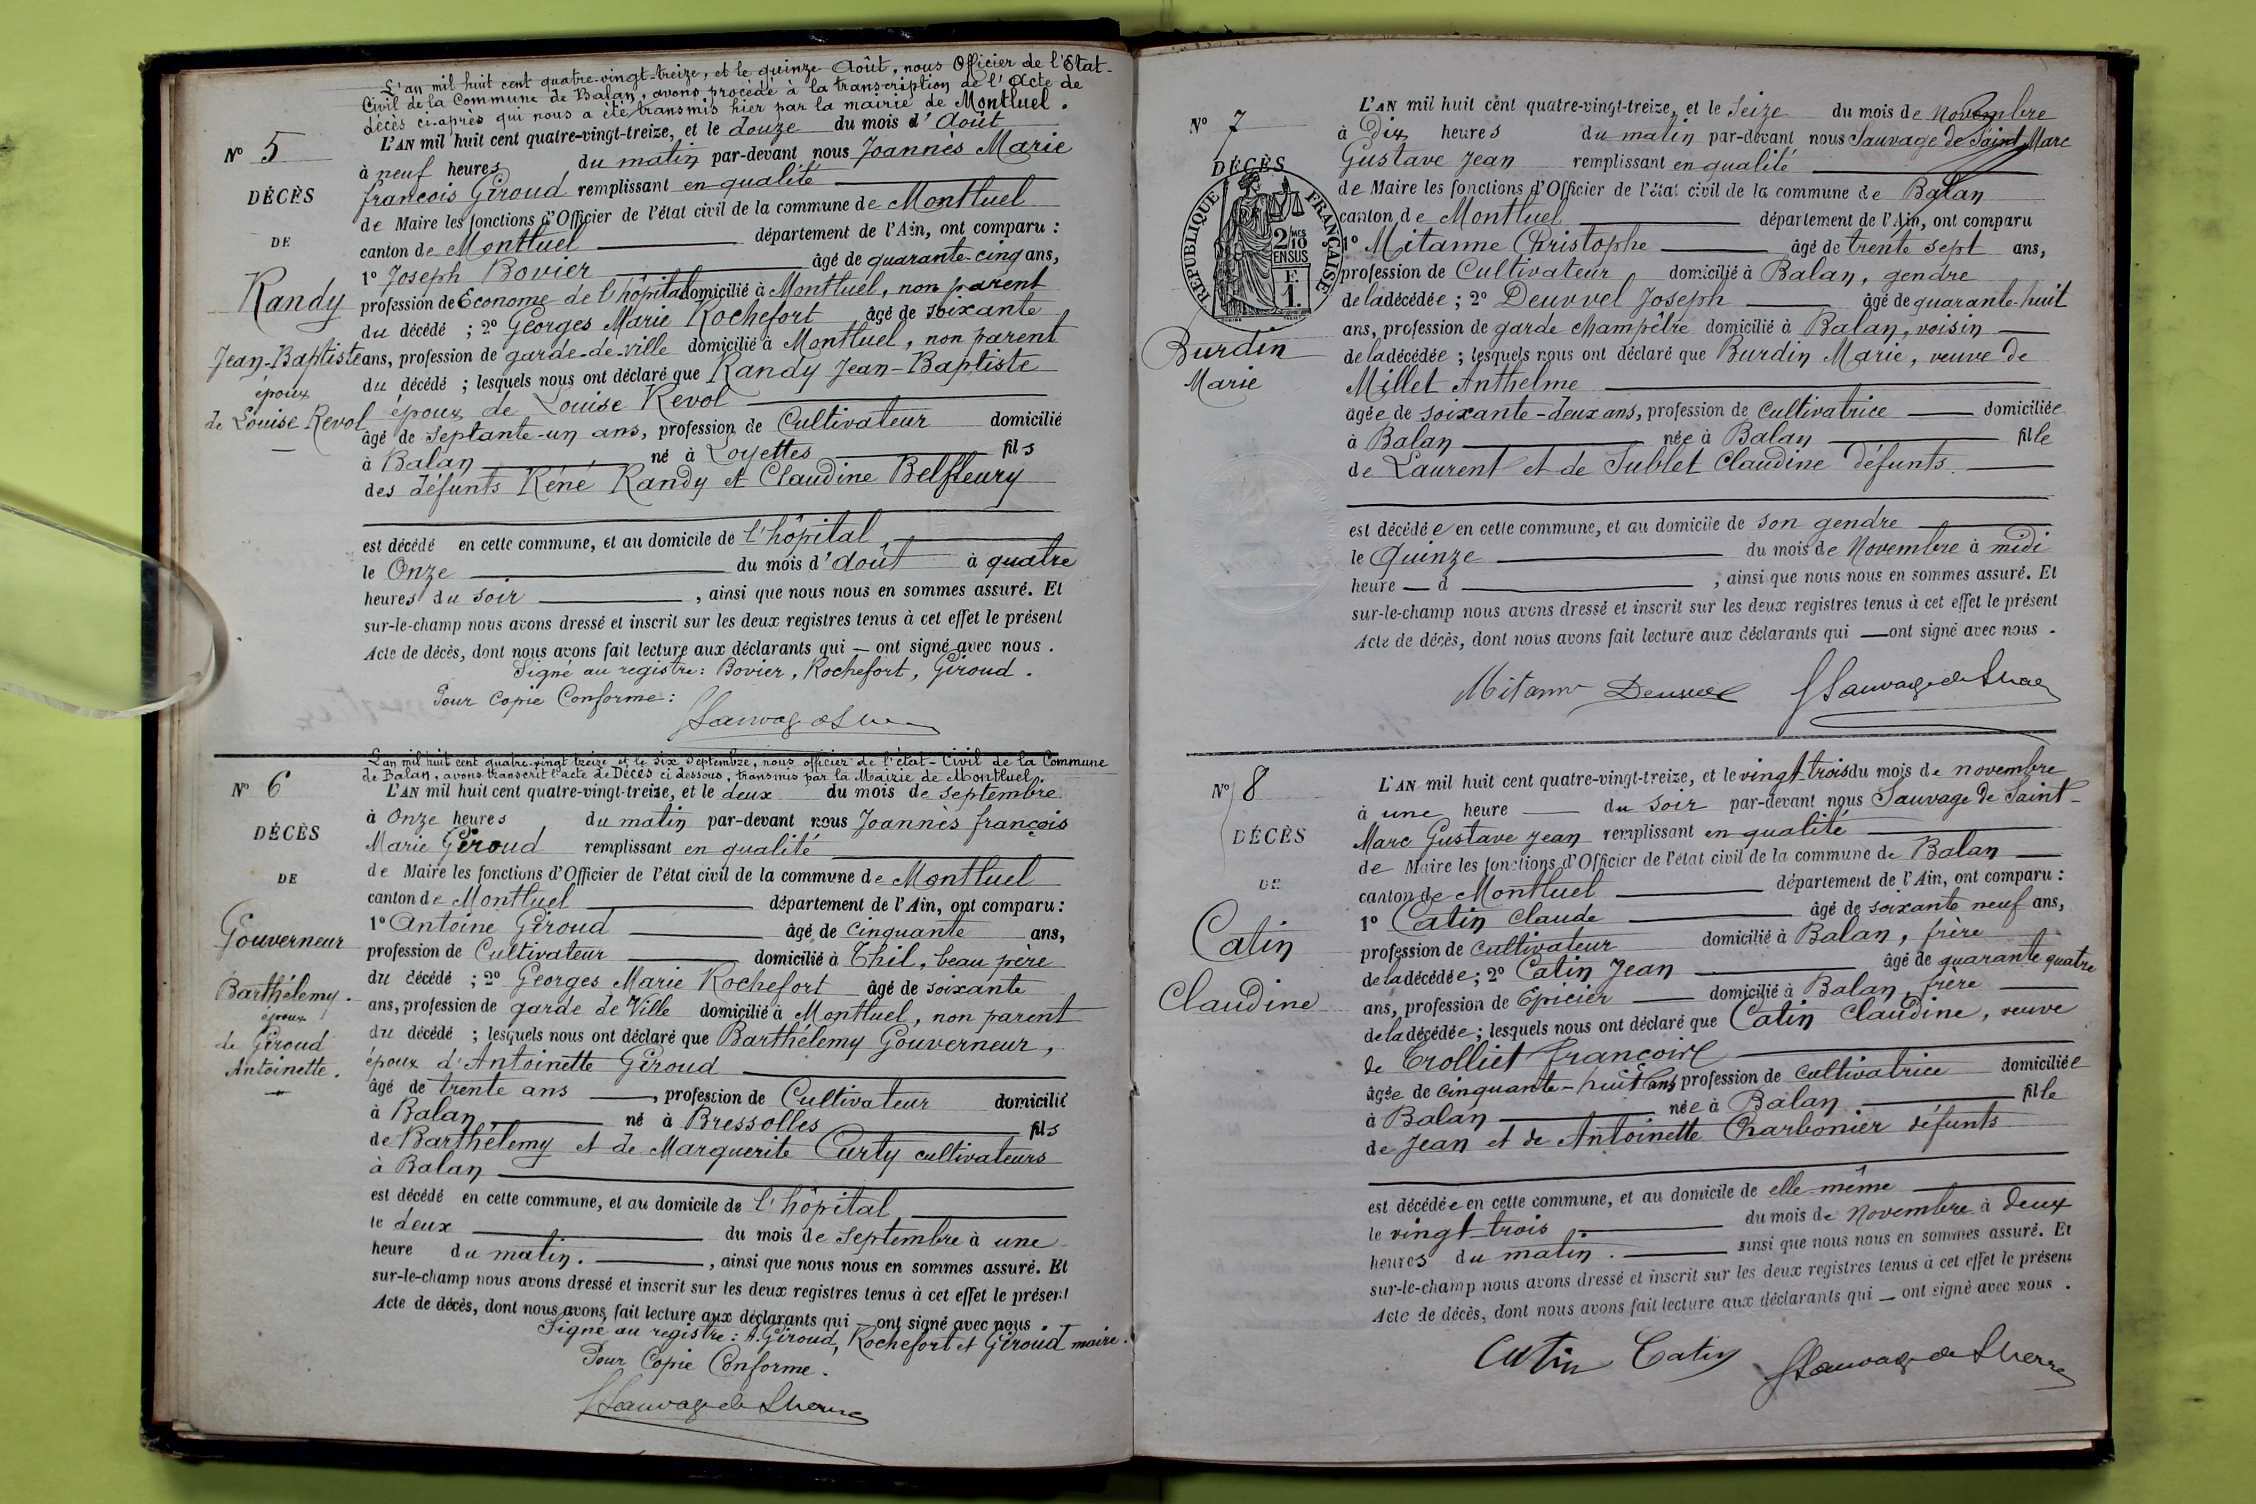 L'an mil huit cent quatre-vingt-treize, et le quinze Août, nous Officier de l'Etat-
Civil de la Commune de Balan, avons procédé à la transcription de l'Acte de
décès ci-après qui nous a été transmis hier par la mairie de Montluel.
N° 5
DÉCÈS
DE
Randy
Jean-Baptiste
époux
de Louise Revol
L'AN mil huit cent quatre-vingt-treize, et le douze du mois d'Août
à neuf heures du matin par-devant nous Joannès Marie
françois Giroud remplissant en qualité
de Maire les fonctions d'Officier de l'état civil de la commune de Montluel
canton de Montluel département de l'Ain, ont comparu :
1° Joseph Bovier âgé de quarante-cinq ans,
profession de Econome de l'hôpital domicilié à Montluel, non parent
du décédé ; 2° Georges Marie Rochefort âgé de soixante
ans, profession de garde-de-ville domicilié à Montluel, non parent
du décédé ; lesquels nous ont déclaré que Randy Jean-Baptiste
époux de Louise Revol
âgé de septante-un ans, profession de Cultivateur domicilié
à Balan né à Loyettes fils
des défunts Réné Randy et Claudine Belfleury
est décédé en cette commune, et au domicile de l'hôpital,
le Onze du mois d'août à quatre
heures du soir , ainsi que nous nous en sommes assuré. Et
sur-le-champ nous avons dressé et inscrit sur les deux registres tenus à cet effet le présent
Acte de décès, dont nous avons fait lecture aux déclarants qui — ont signé avec nous.
Signé au registre : Bovier, Rochefort, Giroud.
Pour Copie Conforme :
L'an mil huit cent quatre-vingt treize et le six Septembre, nous officier de l'état-Civil de la Commune
de Balan, avons transcrit l'acte de Décès ci dessous, transmis par la Mairie de Montluel.
N° 6
DÉCÈS
DE
Gouverneur
Barthélemy.
époux
de Giroud
Antoinette.
L'AN mil huit cent quatre-vingt-treize, et le deux du mois de septembre
à Onze heures du matin par-devant nous Joannès françois
Marie Giroud remplissant en qualité
de Maire les fonctions d'Officier de l'état civil de la commune de Montluel
canton de Montluel département de l'Ain, ont comparu :
1° Antoine Giroud âgé de cinquante ans,
profession de Cultivateur domicilié à Thil, beau père
du décédé ; 2° Georges Marie Rochefort âgé de soixante
ans, profession de garde de Ville domicilié à Montluel, non parent
du décédé ; lesquels nous ont déclaré que Barthélemy Gouverneur,
époux d'Antoinette Giroud
âgé de trente ans , profession de Cultivateur domicilié
à Balan, né à Bressolles fils
de Barthélemy et de Marguerite Curty cultivateurs
à Balan
est décédé en cette commune, et au domicile de l'hôpital,
le deux du mois de septembre à une
heure du matin. , ainsi que nous nous en sommes assuré. Et
sur-le-champ nous avons dressé et inscrit sur les deux registres tenus à cet effet le présent
Acte de décès, dont nous avons fait lecture aux déclarants qui — ont signé avec nous.
Signé au registre : A. Giroud, Rochefort et Giroud maire.
Pour Copie Conforme.
N° 7
DÉCÈS
RÉPUBLIQUE FRANÇAISE
2 MES
10
EN SUS
F.
1.
Burdin
Marie
L'AN mil huit cent quatre-vingt-treize, et le Seize du mois de Novembre
à Dix heures du matin par-devant nous Sauvage de Saint Marc
Gustave Jean remplissant en qualité
de Maire les fonctions d'Officier de l'état civil de la commune de Balan
canton de Montluel département de l'Ain, ont comparu
1° Mitanne Christophe âgé de trente sept ans,
profession de Cultivateur domicilié à Balan, gendre
de la décédée ; 2° Deuvvel Joseph âgé de quarante-huit
ans, profession de garde champêtre domicilié à Balan, voisin
de la décédée ; lesquels nous ont déclaré que Burdin Marie, veuve de
Millet Anthelme
âgée de soixante-deux ans, profession de cultivatrice domiciliée
à Balan née à Balan fille
de Laurent et de Sublet Claudine défunts.
est décédée en cette commune, et au domicile de son gendre
le Quinze du mois de Novembre à midi
heure — d , ainsi que nous nous en sommes assuré. Et
sur-le-champ nous avons dressé et inscrit sur les deux registres tenus à cet effet le présent
Acte de décès, dont nous avons fait lecture aux déclarants qui — ont signé avec nous.
N° 8
DÉCÈS
DE
Catin
Claudine
L'AN mil huit cent quatre-vingt-treize, et le vingt-trois du mois de novembre
à une heure — du soir par-devant nous Sauvage de Saint-
Marc Gustave Jean remplissant en qualité
de Maire les fonctions d'Officier de l'état civil de la commune de Balan
canton de Montluel département de l'Ain, ont comparu :
1° Catin Claude âgé de soixante neuf ans,
profession de cultivateur domicilié à Balan, frère
de la décédée ; 2° Catin Jean âgé de quarante quatre
ans, profession de Epicier domicilié à Balan, frère
de la décédée ; lesquels nous ont déclaré que Catin Claudine, veuve
de Trolliet
âgée de cinquante-huit ans profession de cultivatrice domiciliée
à Balan née à Balan fille
de Jean et de Antoinette Charbonier défunts
est décédée en cette commune, et au domicile de elle-même
le vingt-trois du mois de Novembre à deux
heures du matin. ainsi que nous nous en sommes assuré. Et
sur-le-champ nous avons dressé et inscrit sur les deux registres tenus à cet effet le présent
Acte de décès, dont nous avons fait lecture aux déclarants qui — ont signé avec nous.
Catin Catin